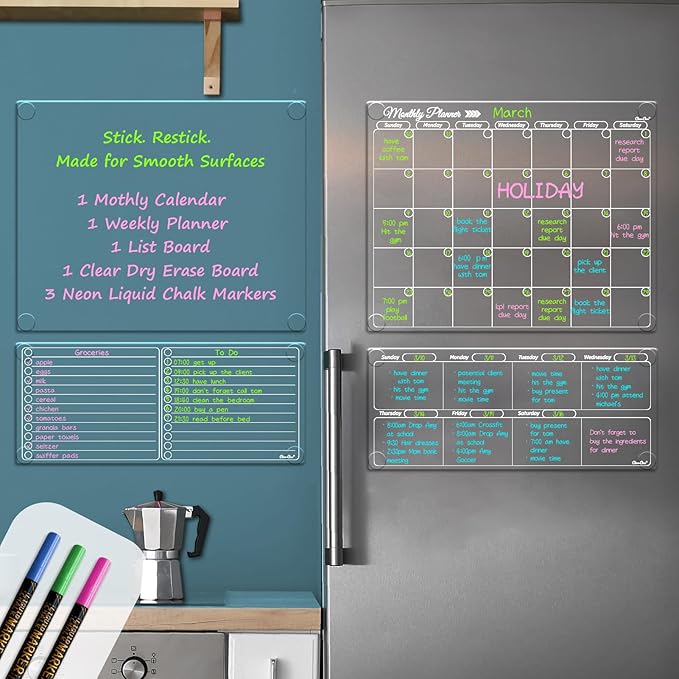 Stick. Restick.
Made for Smooth Surfaces
1 Mothly Calendar
1 Weekly Planner
1 List Board
1 Clear Dry Erase Board
3 Neon Liquid Chalk Markers
Groceries
apple
eggs
milk
pasta
cereal
chicken
tomatoes
granola bars
paper towels
seltzer
swiffer pads
To Do
07:00 get up
09:00 pick up the client
12:30 have lunch
19:00 don't forget call tom
18:40 clean the bedroom
20:00 buy a pen
21:30 read before bed
Monthly Planner March
Sunday Monday Tuesday Wednesday Thursday Friday Saturday
have
coffee
with tom
research
report
due day
HOLIDAY
9:00 pm
Hit the
gym
book the
flight ticket
research
report
due day
6:00 pm
hit the gym
6:00 pm
have dinner
with tom
pick up
the client
7:00 pm
play
football
kpl report
due day
research
report
due day
book the
flight ticket
Sunday 3/10 Monday 3/11 Tuesday 3/12 Wednesday 3/13
have dinner
with tom
movie time
potential client
meeting
hit the gym
movie time
movie time
hit the gym
buy present
for tom
have dinner
with tom
hit the gym
6:00 pm attend
michael's
Thursday 3/14 Friday 3/15 Saturday 3/16
8:00am Drop Amy
at school
9:30 Hair dresses
2:30pm Mom bank
meeting
6:00am Crossfit
8:00am Drop Amy
at school
6:00pm Amy
Soccer
buy present for
tom
7:00 am have
dinner
movie time
Don't forget to
buy the ingredients
for dinner